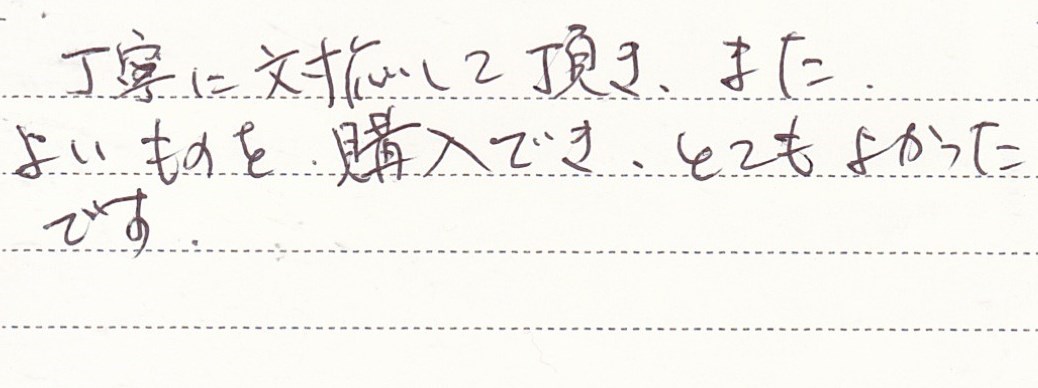 丁寧に対応して頂き、また、
よいものを購入でき、とてもよかった
です.